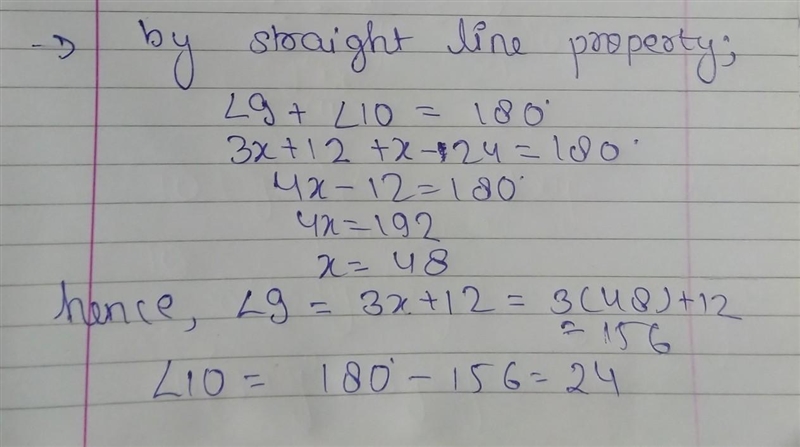 → by straight line property;
∠9 + ∠10 = 180°
3x+12 +x-24=180°
4x-12=180°
4x=192
x=48
hence, ∠9 = 3x+12 = 3(48)+12
= 156
∠10 = 180° - 156 = 24